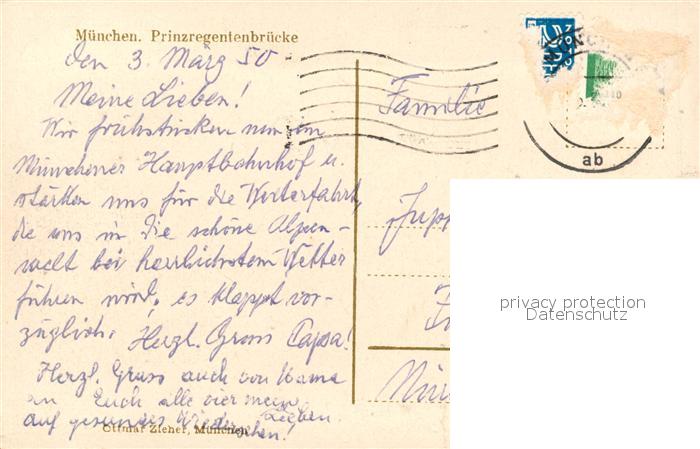 München. Prinzregentenbrücke
den 3. März 50
Meine Lieben!
Wir frühstücken nun im
Münchener Hauptbahnhof u.
stärken uns für die Weiterfahrt,
die uns in die schöne Alpen-
welt bei herrlichstem Wetter
führen wird, es klappt vor-
züglich. Herzl. Gruss Pappa!
Herzl. Gruss auch von Mama
an Euch alle vier meine Lieben.
auf gesundes Wiedersehen!
Ottmar Zieher, München
Familie
ab
privacy protection
Datenschutz